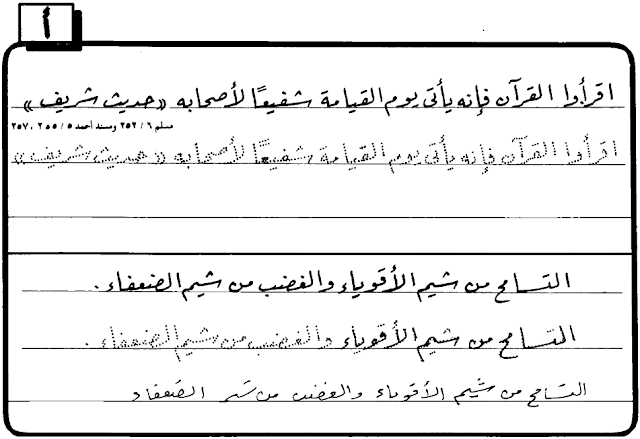 أ
اقرأوا القرآن فإنه يأتى يوم القيامة شفيعًا لأصحابه «حديث شريف»
مسلم ٦ / ٢٥٢ ومسند أحمد ٥ / ٢٥٥ ، ٢٥٧
اقرأوا القرآن فإنه يأتى يوم القيامة شفيعًا لأصحابه «حديث شريف»
التسامح من شيم الأقوياء والغضب من شيم الضعفاء .
التسامح من شيم الأقوياء والغضب من شيم الضعفاء .
التسامح من شيم الأقوياء والغضب من الضعفاء